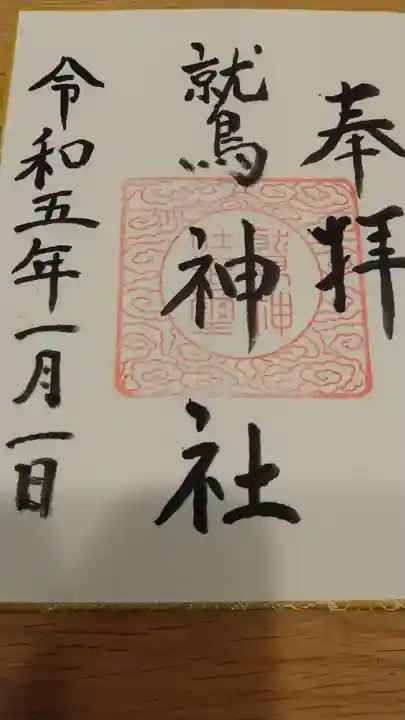 奉拝
鷲神社
令和五年一月一日